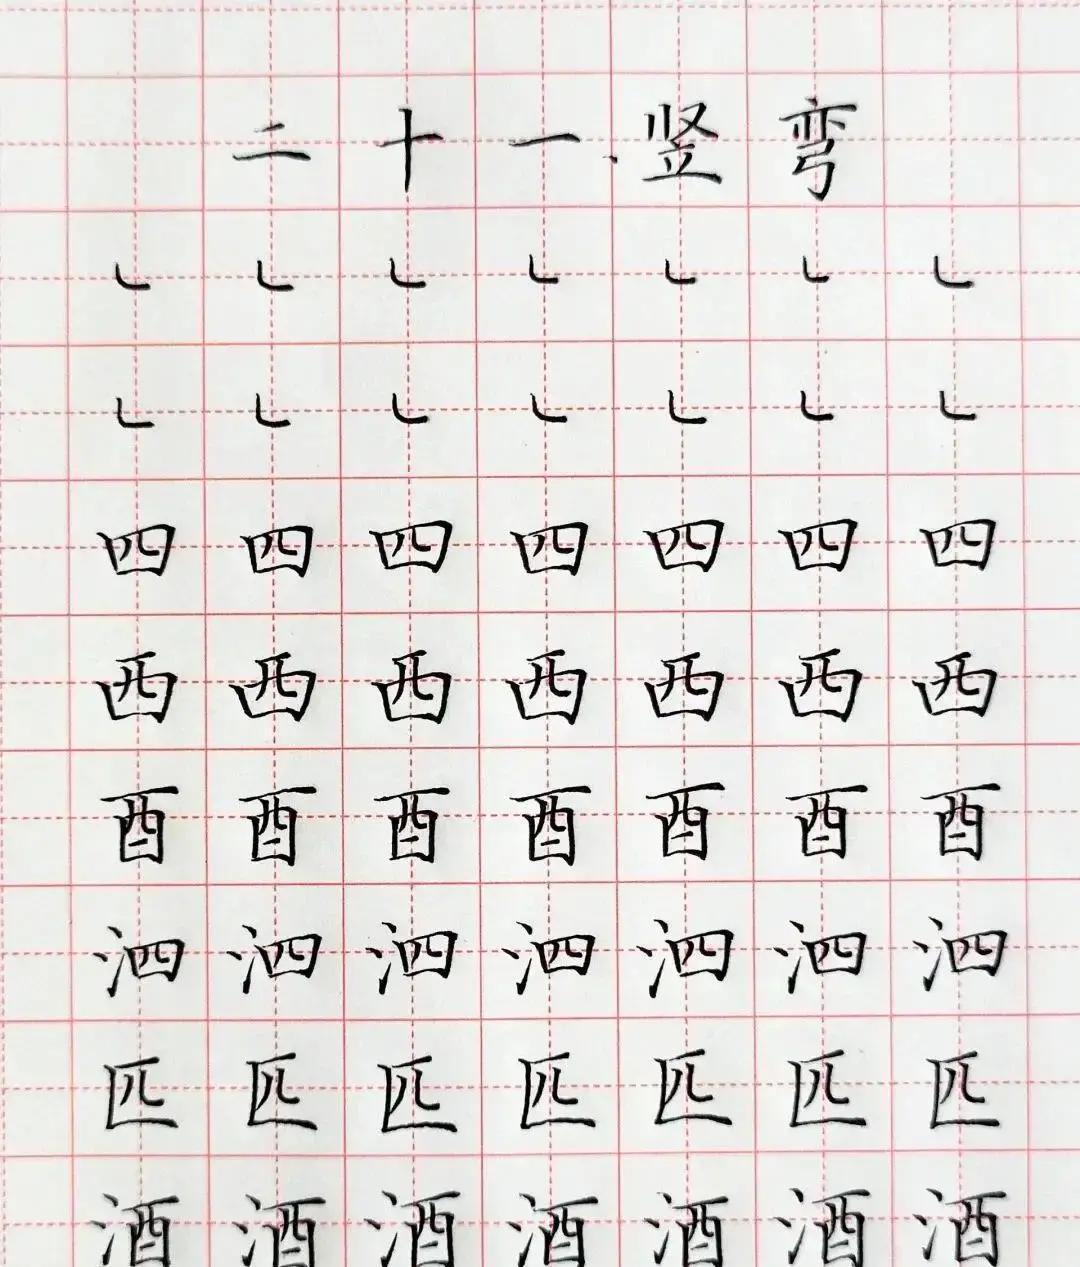 二十一、竖弯
㇄㇄㇄㇄㇄㇄㇄
㇄㇄㇄㇄㇄㇄㇄
四四四四四四四
西西西西西西西
酉酉酉酉酉酉酉
泗泗泗泗泗泗泗
匹匹匹匹匹匹匹
酒酒酒酒酒酒酒